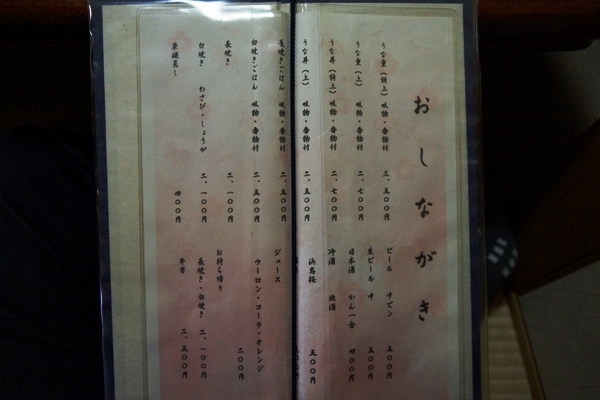 おしながき
うな重（特上） 吸物・香物付 三、五〇〇円
うな重（上） 吸物・香物付 二、七〇〇円
うな丼（特上） 吸物・香物付 二、七〇〇円
うな丼（上） 吸物・香物付 二、五〇〇円
長焼きごはん 吸物・香物付 二、五〇〇円
白焼きごはん 吸物・香物付 二、五〇〇円
長焼き 二、一〇〇円
白焼き わさび・しょうが 二、一〇〇円
茶碗蒸し 四〇〇円
ビール 中ビン 五〇〇円
生ビール 中 五〇〇円
日本酒 かん一合 四〇〇円
冷酒
浜名桜 五〇〇円
ジュース
ウーロン・コーラ・オレンジ 二〇〇円
お持ち帰り
長焼き・白焼き 二、一〇〇円
弁当 二、五〇〇円